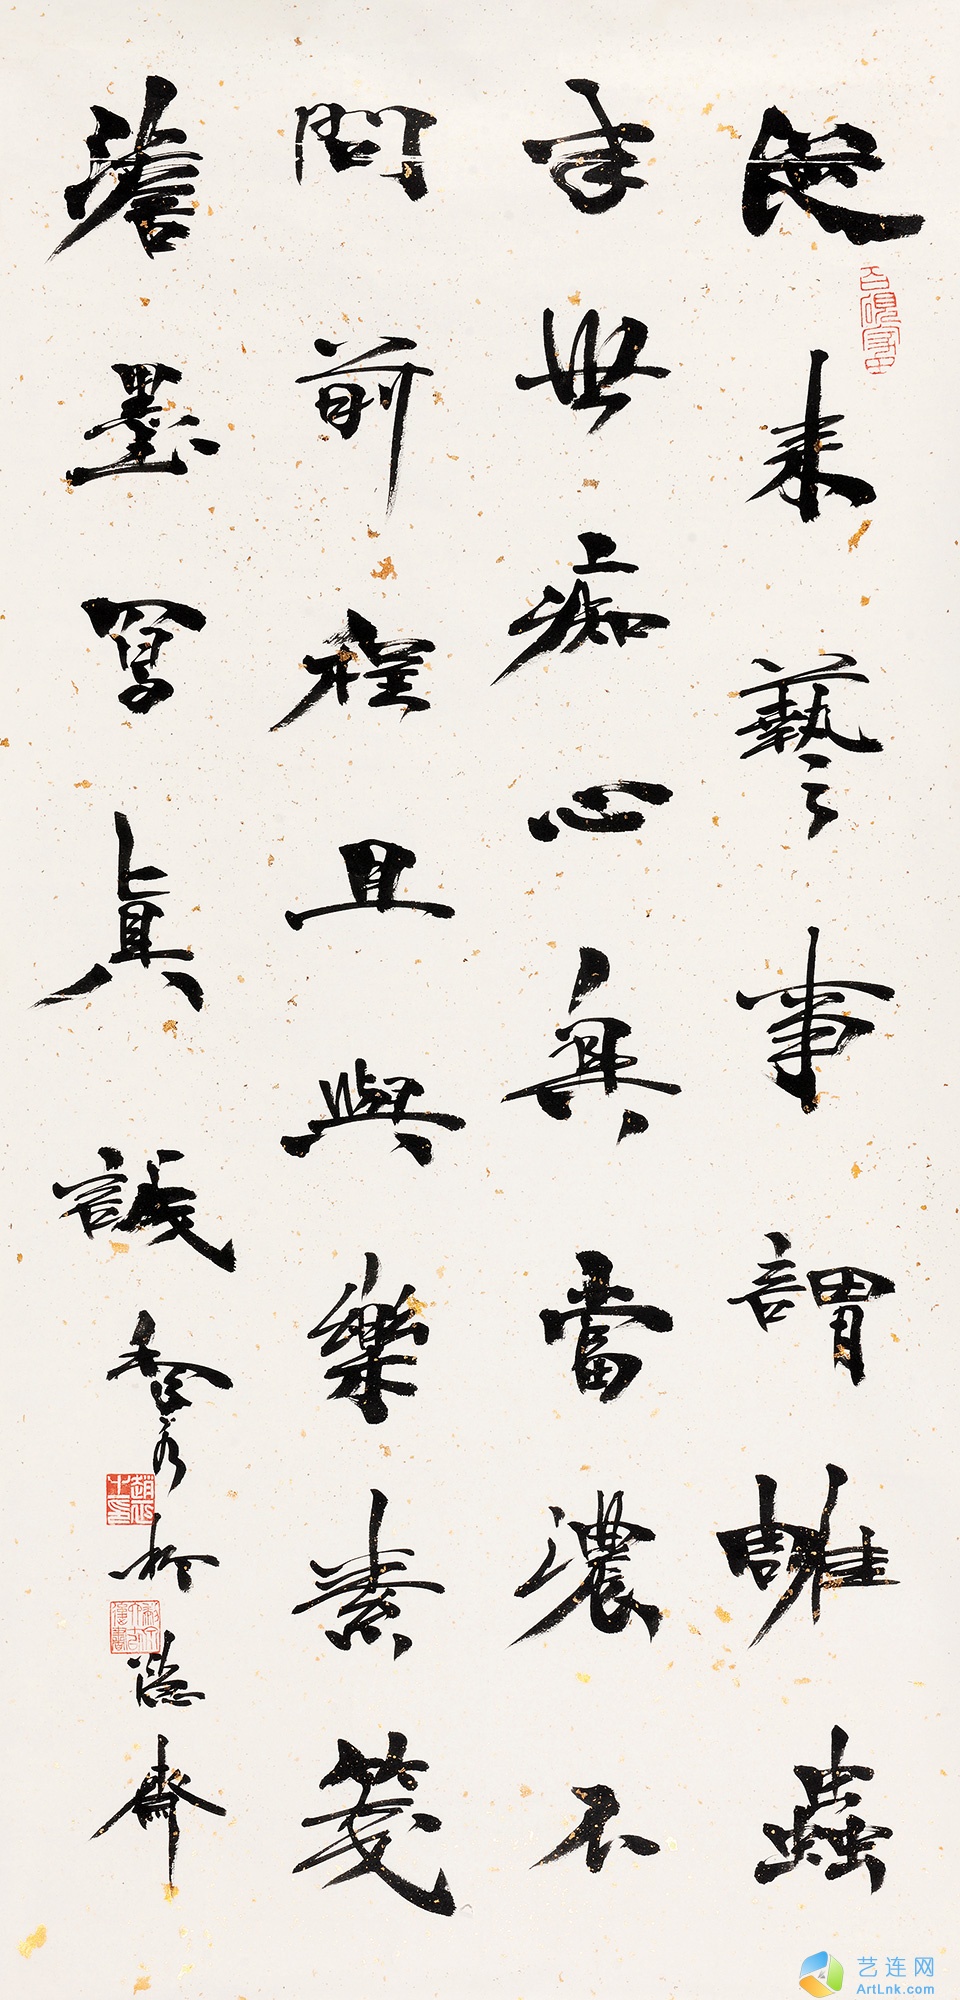 從來藝事謂雕蟲
半世痴心興當濃不
問前程且與樂素箋
澹墨寫真誠
於隱齋
艺连网
ArtLnk.com